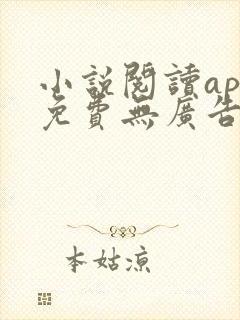 小說閱讀ap
免費無廣告
本姑涼